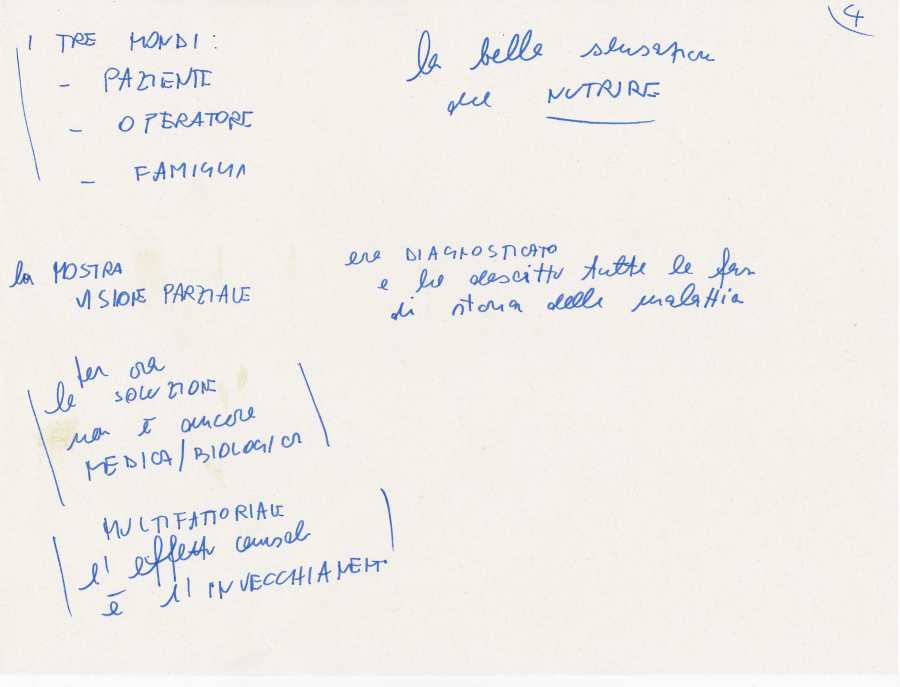 4
I TRE MONDI:
- PAZIENTE
- OPERATORE
- FAMIGLIA
la bella sensazione
del NUTRIRE
la MOSTRA
VISIONE PARZIALE
era DIAGNOSTICATO
e ha descritto tutte le fasi
di storia della malattia
Per ora
la SOLUZIONE
non è ancora
MEDICA/BIOLOGICA
MULTIFATTORIALE
l'effetto causale
è l'INVECCHIAMENTO